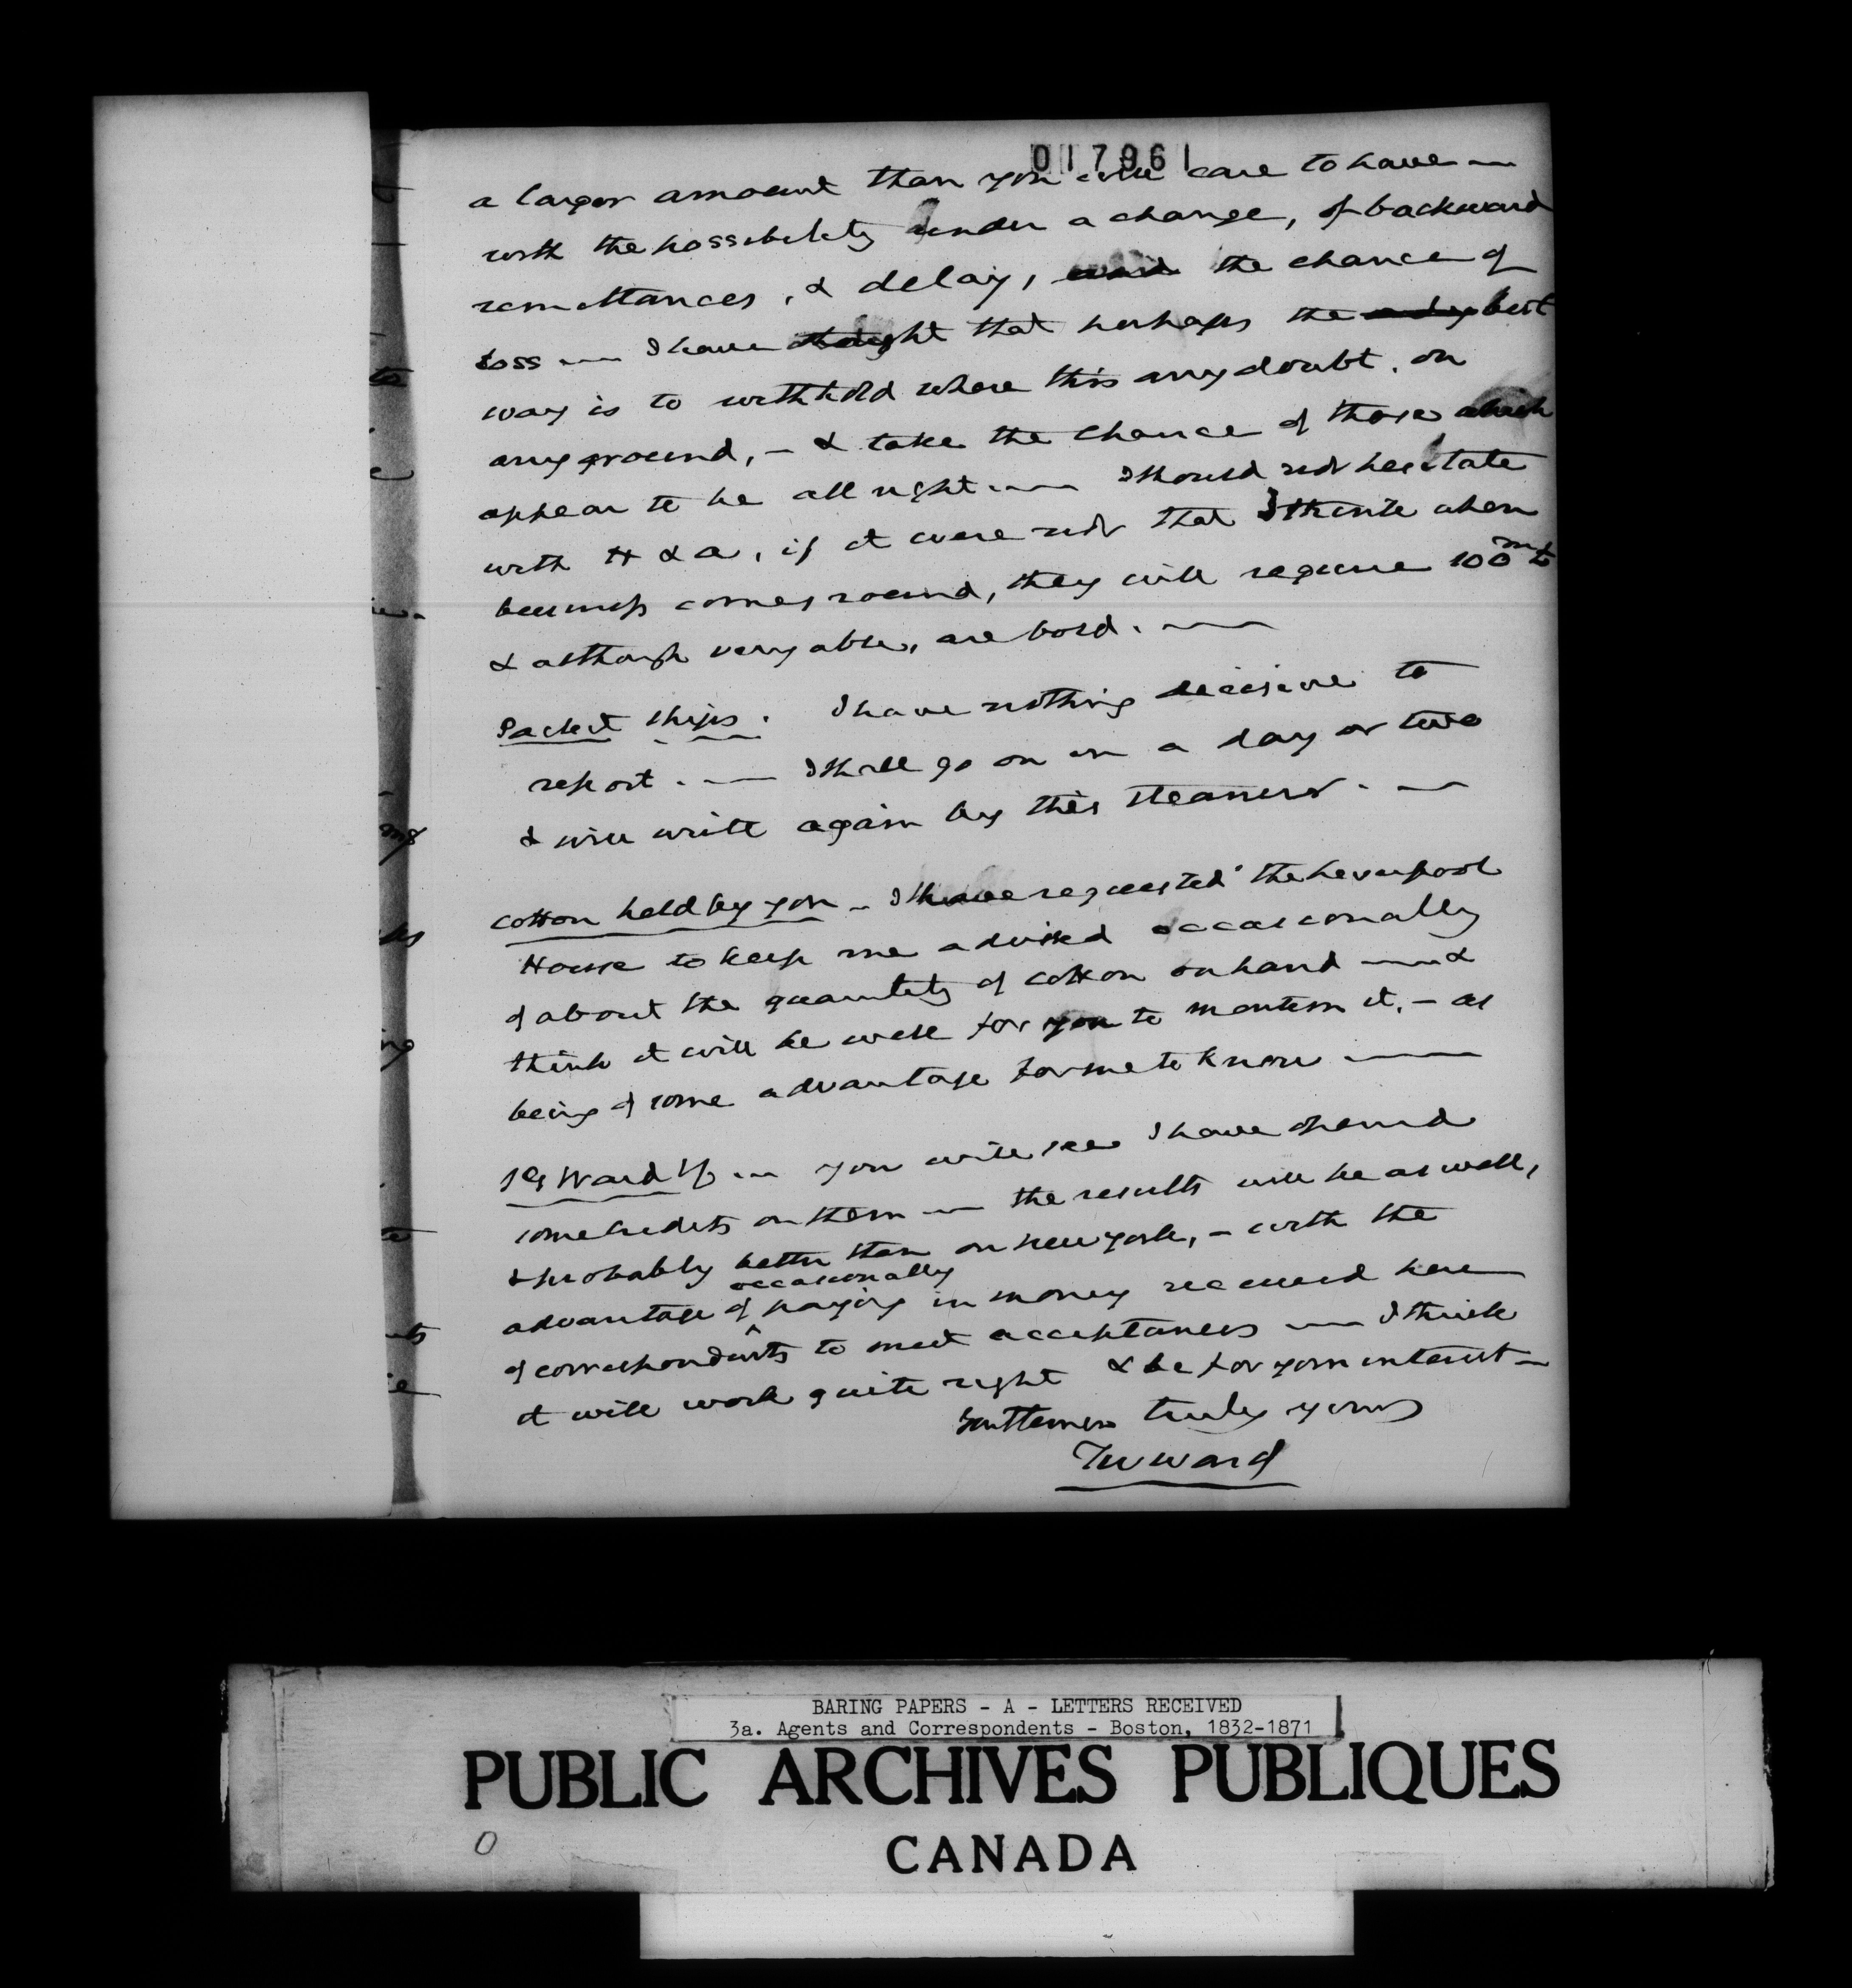 017961
a larger amount than you will care to have —
with the possibility under a change, of backward
remittances, & delay, the chance of
loss — I have thought that perhaps the best
way is to withhold where this any doubt, on
any ground, — & take the chance of those which
appear to be all right — I should not hesitate
with H & a, if it were not that I think when
business comes round, they will require 100m £
& although very able, are bold. —
Packet ships. I have nothing decisive to
report. — I shall go on in a day or two
& will write again by this steamer. —
Cotton held by you — I have requested the Liverpool
House to keep me advised occasionally
of about the quantity of cotton on hand — &
think it will be well for you to mention it, — as
being of some advantage for me to know —
Ward — you will see I have opened
some credits on them — the results will be as well,
& probably better than on New York, — with the
occasionally
advantage of ^ paying in money received here
of correspondents to meet acceptances — I think
it will work quite right & be for your interest —
Gentlemen truly yours
TW Ward
BARING PAPERS - A - LETTERS RECEIVED
3a. Agents and Correspondents - Boston, 1832-1871
PUBLIC ARCHIVES PUBLIQUES
CANADA